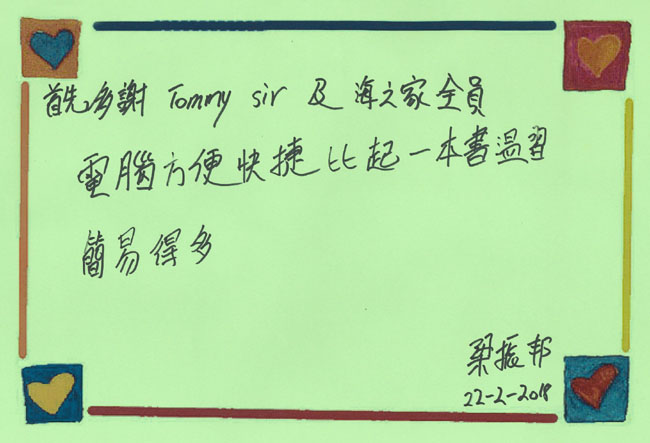 首先多謝 Tommy sir 及海之家全員
電腦方便快捷比起一本書溫習
簡易得多
梁振邦
22-2-2018